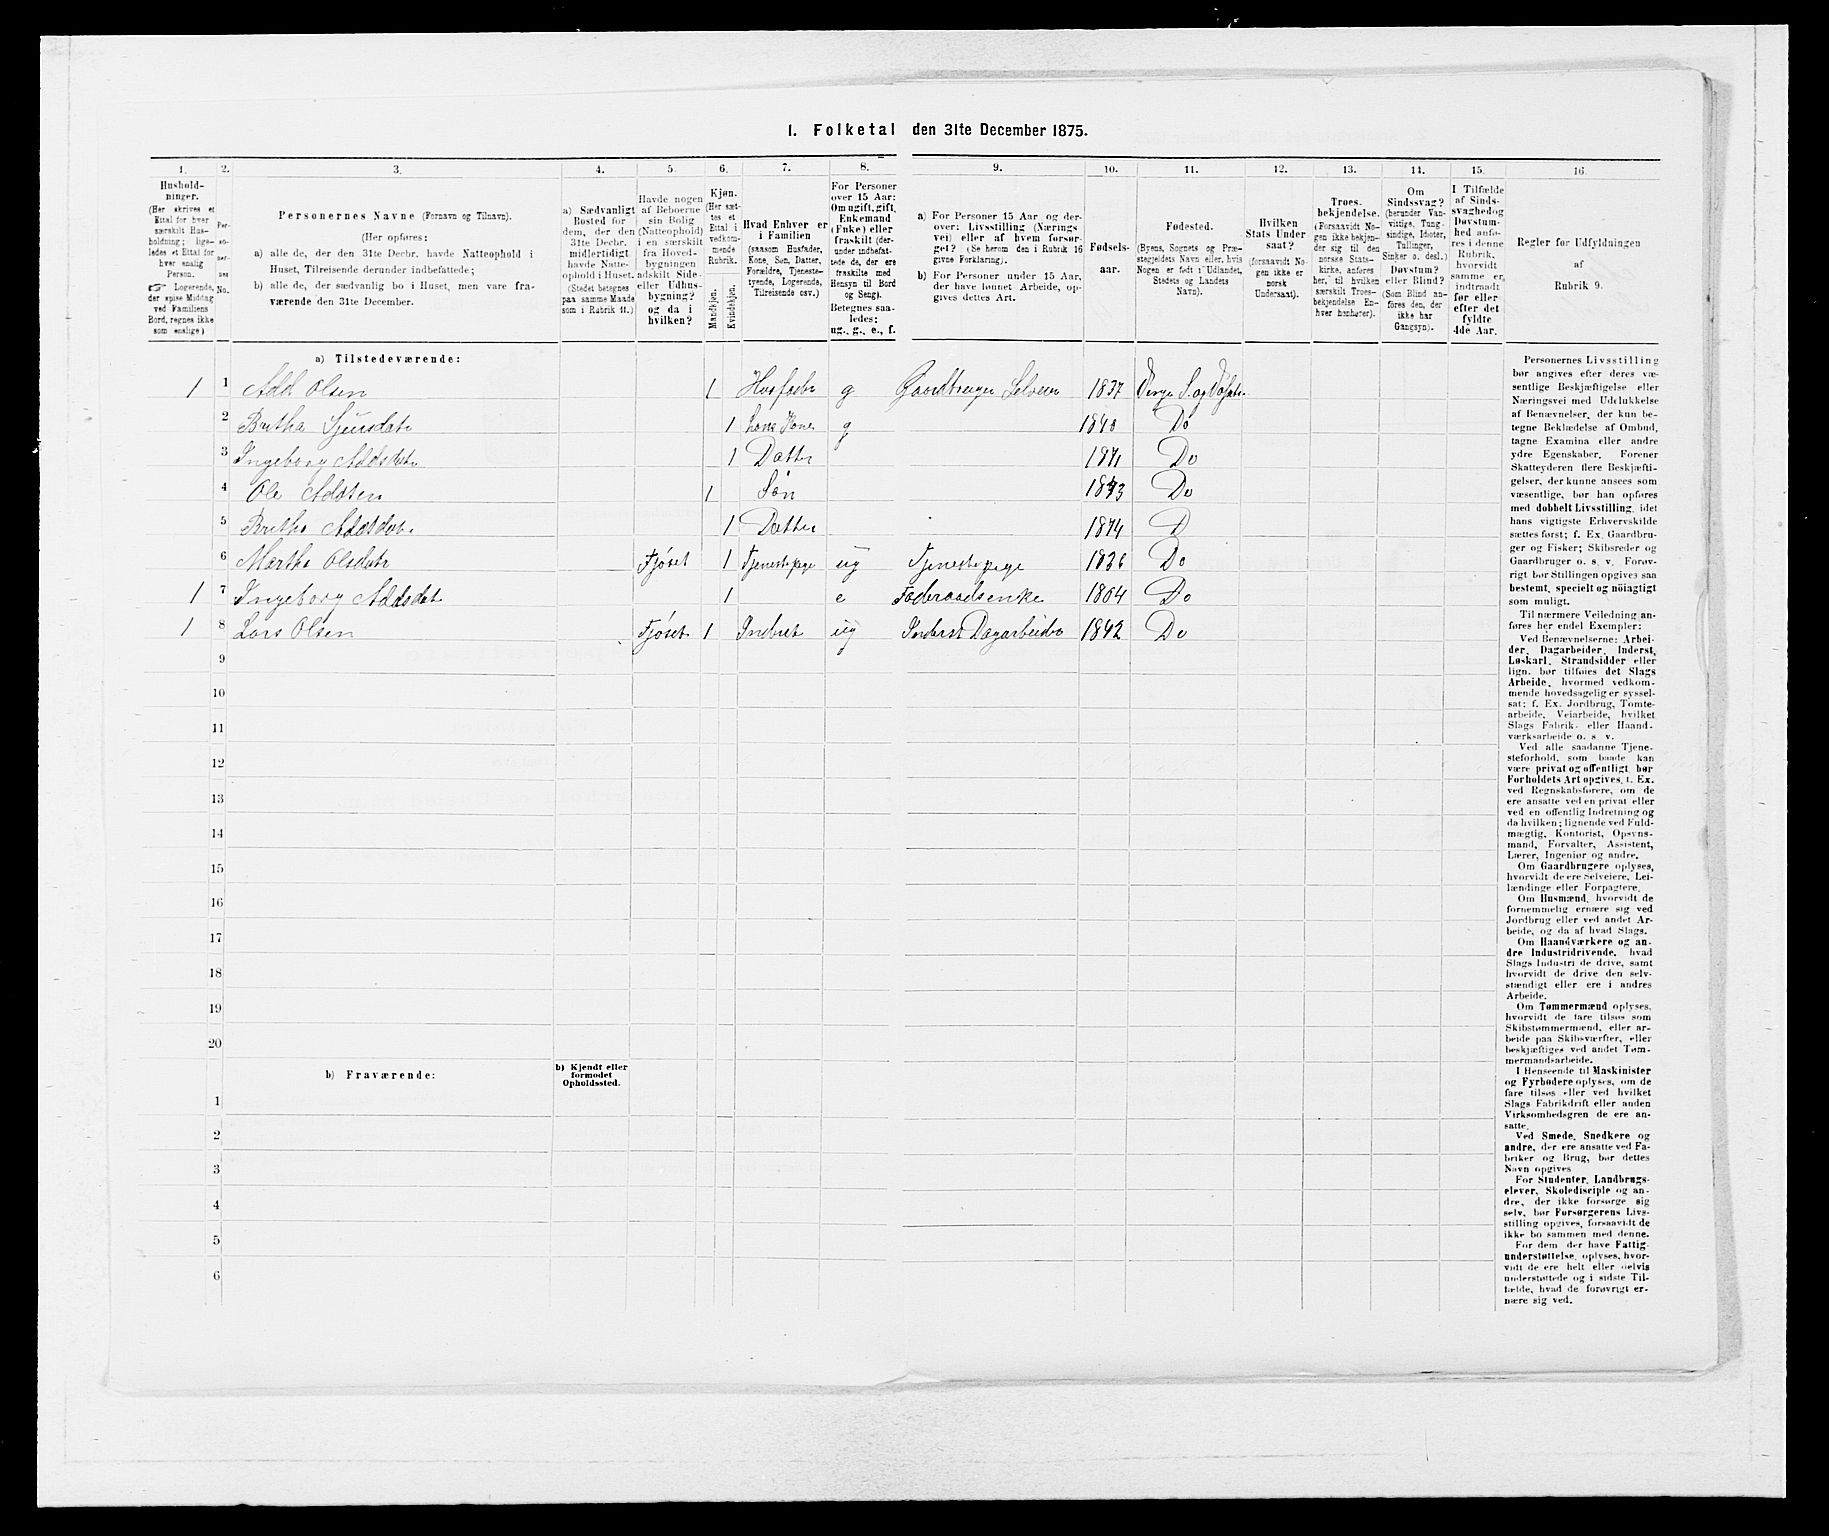 I. Folketal den 31te December 1875.
1. 2. 3. 4. 5. 6. 7. 8. 9. 10. 11. 12. 13. 14. 15. 16.
Hushold-
ninger.
(Her skrives et
Ettal for hver
særskilt Hus-
holdning; lige-
ledes et Ettal for
hver enslig
Person.
☞ Logerende,
der spise Middag
ved Familiens
Bord, regnes ikke
som enslige)
Per-
so-
ner-
nes
No.
Personernes Navne (Fornavn og Tilnavn).
(Her opføres:
a) alle de, der den 31te Decbr. havde Natteophold i
Huset, Tilreisende derunder indbefattede;
b) alle de, der sædvanlig bo i Huset, men vare fra-
værende den 31te December.
a) Sædvanligt
Bosted for
dem, der den
31te Decbr.
midlertidigt
havde Natte-
ophold i Huset.
(Stedet betegnes
paa samme Maade
som i Rubrik 11.)
Havde nogen
af Beboerne
sin Bolig
(Natteophold)
i en særskilt
fra Hoved-
bygningen
adskilt Side-
eller Udhus-
bygning?
og da i
hvilken?
Kjøn.
(Her sæt-
tes et
Ettal i
vedkom-
mende
Rubrik.
Mandkjøn.
Kvindekjøn.
Hvad Enhver er
i Familien
(saasom Husfader,
Kone, Søn, Datter,
Forældre, Tjeneste-
tyende, Logerende,
Tilreisende osv.)
For Personer
over 15 Aar:
Om ugift, gift,
Enkemand
(Enke) eller
fraskilt (der-
under indbefat-
tede de, der ere
fraskilte med
Hensyn til Bord
og Seng).
Betegnes saa-
ledes:
ug., g., e., f.
a) For Personer 15 Aar og der-
over: Livsstilling (Nærings-
vei) eller af hvem forsør-
get? (Se herom den i Rubrik 16
givne Forklaring).
b) For Personer under 15 Aar,
der have lønnet Arbeide, op-
gives dettes Art.
Fødsels-
aar.
Fødested.
(Byens, Sognets og Præ-
stegjeldets Navn eller, hvis
Nogen er født i Udlandet,
Stedets og Landets
Navn).
Hvilken
Stats Under
saat?
(forsaavidt No-
gen ikke er
norsk
Undersaat).
Troes-
bekjendelse.
(Forsaavidt No-
gen ikke bekjen-
der sig til den
norske Stats-
kirke, anføres
her, til hvilken
særskilt Troes-
bekjendelse En-
hver henhører).
Om
Sindssvag?
(herunder Van-
vittige, Tung-
sindige, Idioter,
Tullinger,
Sinker o. desl.)
Døvstum?
eller Blind?
(Som Blind an-
føres den, der
ikke har
Gangsyn).
I Tilfælde
af Sinds-
svaghed og
Døvstum-
hed anfø-
res i denne
Rubrik,
hvorvidt
samme er
indtraadt
før eller
efter det
fyldte
4de Aar.
Regler for Udfyldningen
af
Rubrik 9.
a) Tilstedeværende:
1 1 Adds Olsen 1 Husfader g Gaardbruger Selveier 1837
2 Britha Sjursdatr 1 hans Kone g 1840 Do
3 Ingeborg Addsdatr 1 Datter 1871 Do
4 Ole Addsen 1 Søn 1873 Do
5 Britha Addsdatr 1 Datter 1874 D
6 Martha Olsdatr Fjøset 1 Tjenestepige ug Tjenestepige 1836 Do
1 7 Ingeborg Addsdat 1 e Føderaadsenke 1804 Do
1 8 Lars Olsen Fjøset 1 Inderst ug Inderst Dagarbeider 1842 Do
9
10
11
12
13
14
15
16
17
18
19
20
b) Fraværende:
b) Kjendt eller
formodet
Opholdssted.
1
2
3
4
5
6
Personernes Livsstilling
bør angives efter deres væ-
sentlige Beskjæftigelse eller
Næringsvei med Udelukkelse
af Benævnelser, der kun be-
tegne Beklædelse af Ombud,
tagne Examina eller andre
ydre Egenskaber. Forener
Skatteyderen flere Beskjæfti-
gelser, der kunne ansees som
væsentlige, bør han opføres
med dobbelt Livsstilling, idet
hans vigtigste Erhvervskilde
sættes først; f. Ex. Gaardbru-
ger og Fisker; Skibsreder og
Gaardbruger o. s. v. Forøv-
rigt bør Stillingen opgives saa
bestemt, specielt og nöiagtigt
som muligt.
Til nærmere Veiledning an-
føres her endel Exempler:
Ved Benævnelserne: Arbei-
der, Dagarbeider, Inderst,
Løskarl, Strandsidder eller
lign. bør tilføies det Slags
Arbeide, hvormed vedkom-
mende hovedsagelig er syssel-
sat; f. Ex. Jordbrug, Tomte-
arbeide, Veiarbeide, hvilket
Slags Fabrik- eller Haand-
værksarbeide o. s. v.
Ved alle saadanne Tjene-
steforhold, som baade kan
være privat og offentligt, bør
Forholdets Art opgives, t. Ex.
ved Regnskabsførere, om de
ere ansatte ved en privat eller
ved en offentlig Indretning og
da hvilken; lignende ved Fuld-
mægtig, Kontorist, Opsyns-
mand, Forvalter, Assistent,
Lærer, Ingeniør og andre.
Om Gaardbrugere oplyses,
hvorvidt de ere Selveiere, Lei-
lændinge eller Forpagtere.
Om Husmænd, hvorvidt de
fornemmelig ernære sig ved
Jordbrug eller ved andet Ar-
beide, og da af hvad Slags.
Om Haandværkere og an-
dre Industridrivende, hvad
Slags Industri de drive, samt
hvorvidt de drive den selv-
stændigt eller ere i andres
Arbeide.
Om Tømmermænd oplyses,
hvorvidt de fare tilsøs som
Skibstømmermænd, eller ar-
beide paa Skibsværfter, eller
beskjæftiges ved andet Tøm-
mermandsarbeide.
I Henseende til Maskinister
og Fyrbødere oplyses, om de
fare tilsøs eller ved hvilket
Slags Fabrikdrift eller anden
Virksomhedsgren de ere an-
satte.
Ved Smede, Snedkere og
andre, der ere ansatte ved Fa-
briker og Brug, bør dettes
Navn opgives
For Studenter, Landbrugs-
elever, Skoledisciple og an-
dre, der ikke forsørge sig
selv, bør Forsørgerens Livs-
stilling opgives, forsaavidt de
ikke bo sammen med denne.
For dem der have Fattig-
understøttelse, oplyses, hvor-
vidt de ere helt eller delvis
understøttede og i sidste Til-
fælde, hvad de forøvrigt er-
nære sig ved.